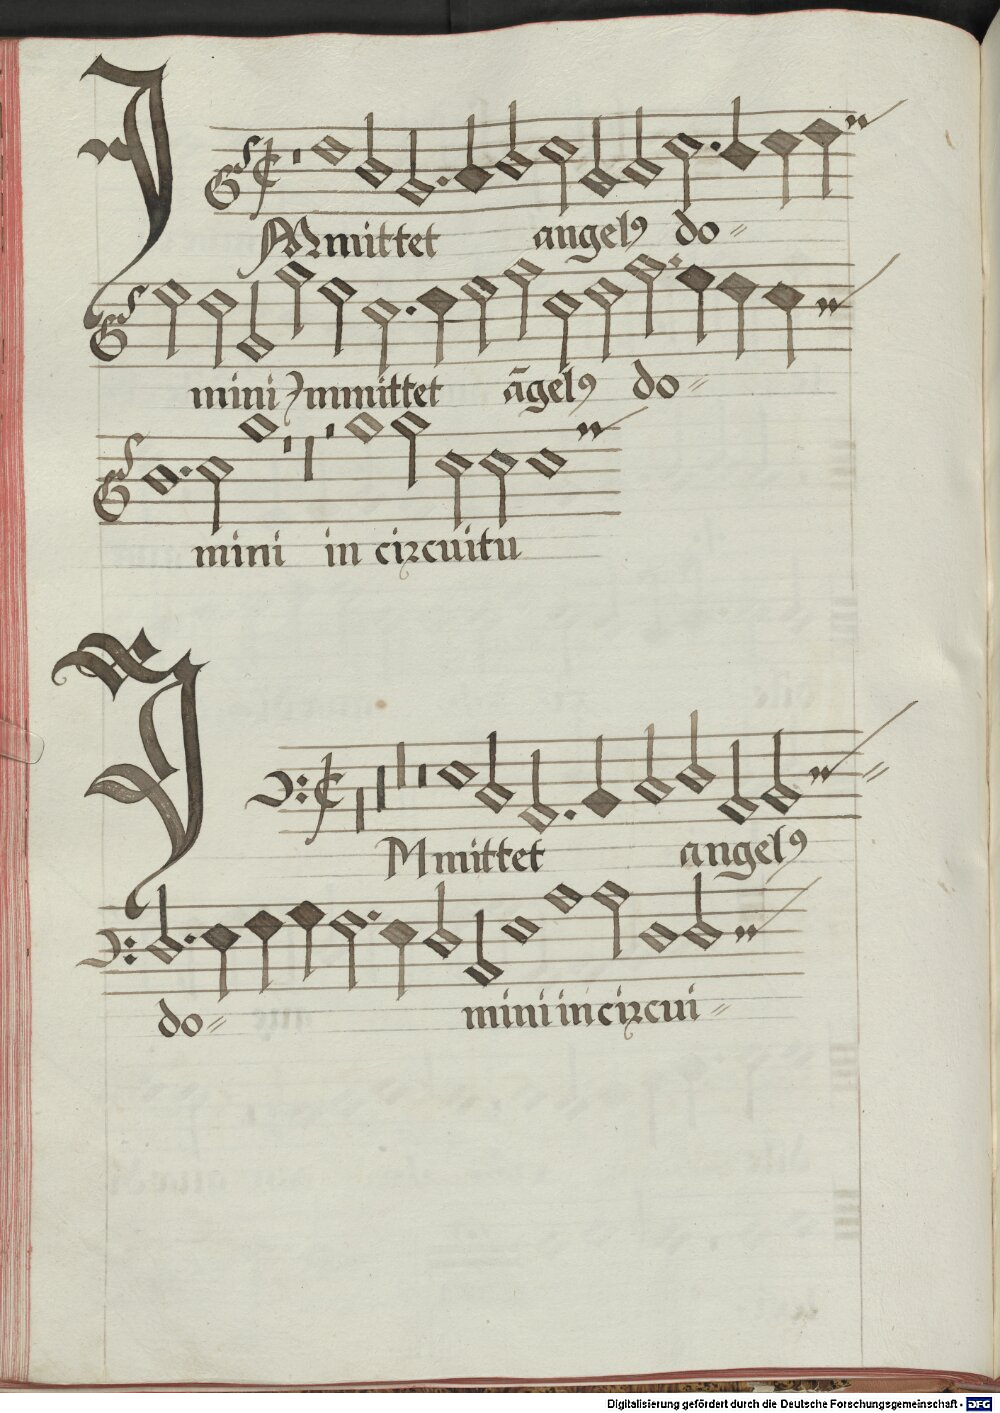 IMmittet angelꝰ do=
mini Immittet āgelꝰ do=
mini in circuitu
IMmittet angelꝰ
do= mini in circui=
Digitalisierung gefördert durch die Deutsche Forschungsgemeinschaft - DFG